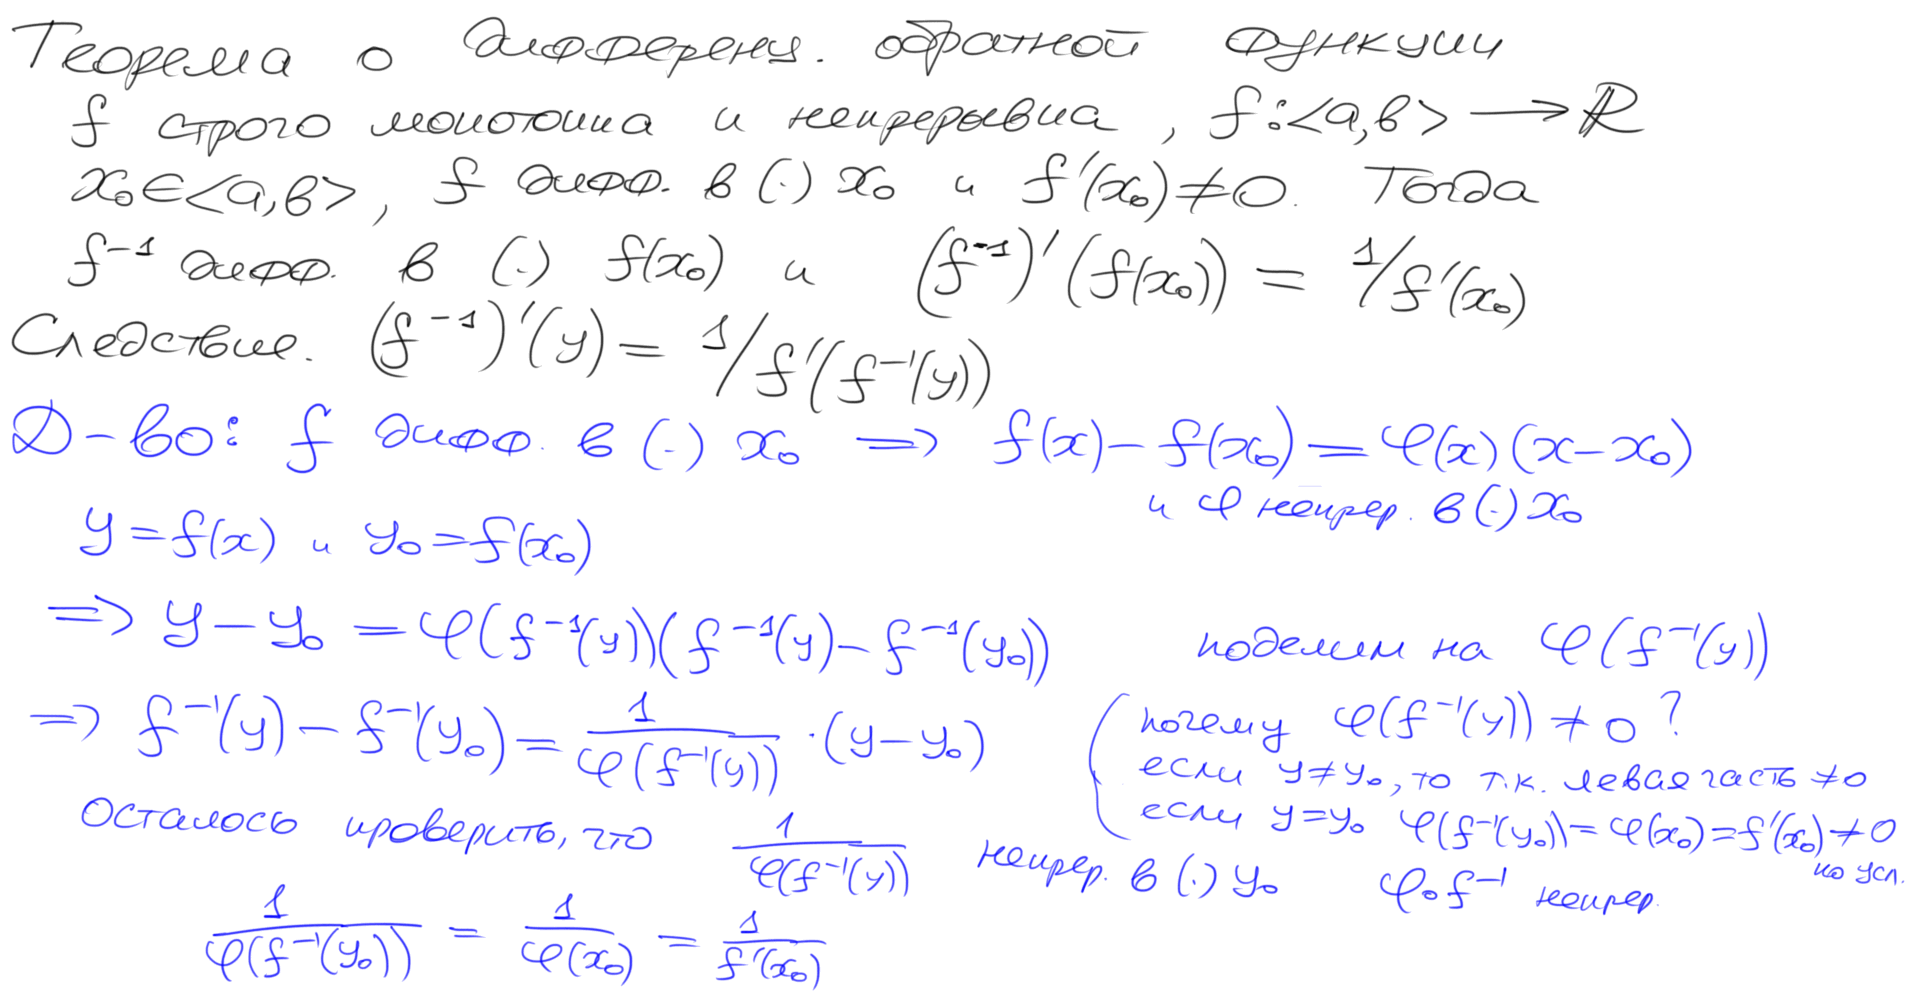 Теорема о дифференц. обратной функции
f строго монотонна и непрерывна, f:<a,b> ⟶ ℝ
x₀∈<a,b>, f дифф. в (·) x₀ и f'(x₀)≠0. Тогда
f⁻¹ дифф. в (·) f(x₀) и (f⁻¹)'(f(x₀)) = 1/f'(x₀)
Следствие. (f⁻¹)'(y) = 1/f'(f⁻¹(y))
Д-во: f дифф. в (·) x₀ => f(x)-f(x₀)=φ(x)(x-x₀)
и φ непрер. в (·) x₀
y=f(x) и y₀=f(x₀)
=> y-y₀ = φ(f⁻¹(y))(f⁻¹(y)-f⁻¹(y₀)) поделим на φ(f⁻¹(y))
=> f⁻¹(y)-f⁻¹(y₀) = 1/φ(f⁻¹(y)) ·(y-y₀)
почему φ(f⁻¹(y)) ≠ 0 ?
если y≠y₀, то т.к. левая часть ≠0
если y=y₀ φ(f⁻¹(y₀))=φ(x₀)=f'(x₀)≠0
по усл.
Осталось проверить, что 1/φ(f⁻¹(y)) непрер. в (·) y₀ φ∘f⁻¹ непрер.
1/φ(f⁻¹(y₀)) = 1/φ(x₀) = 1/f'(x₀)